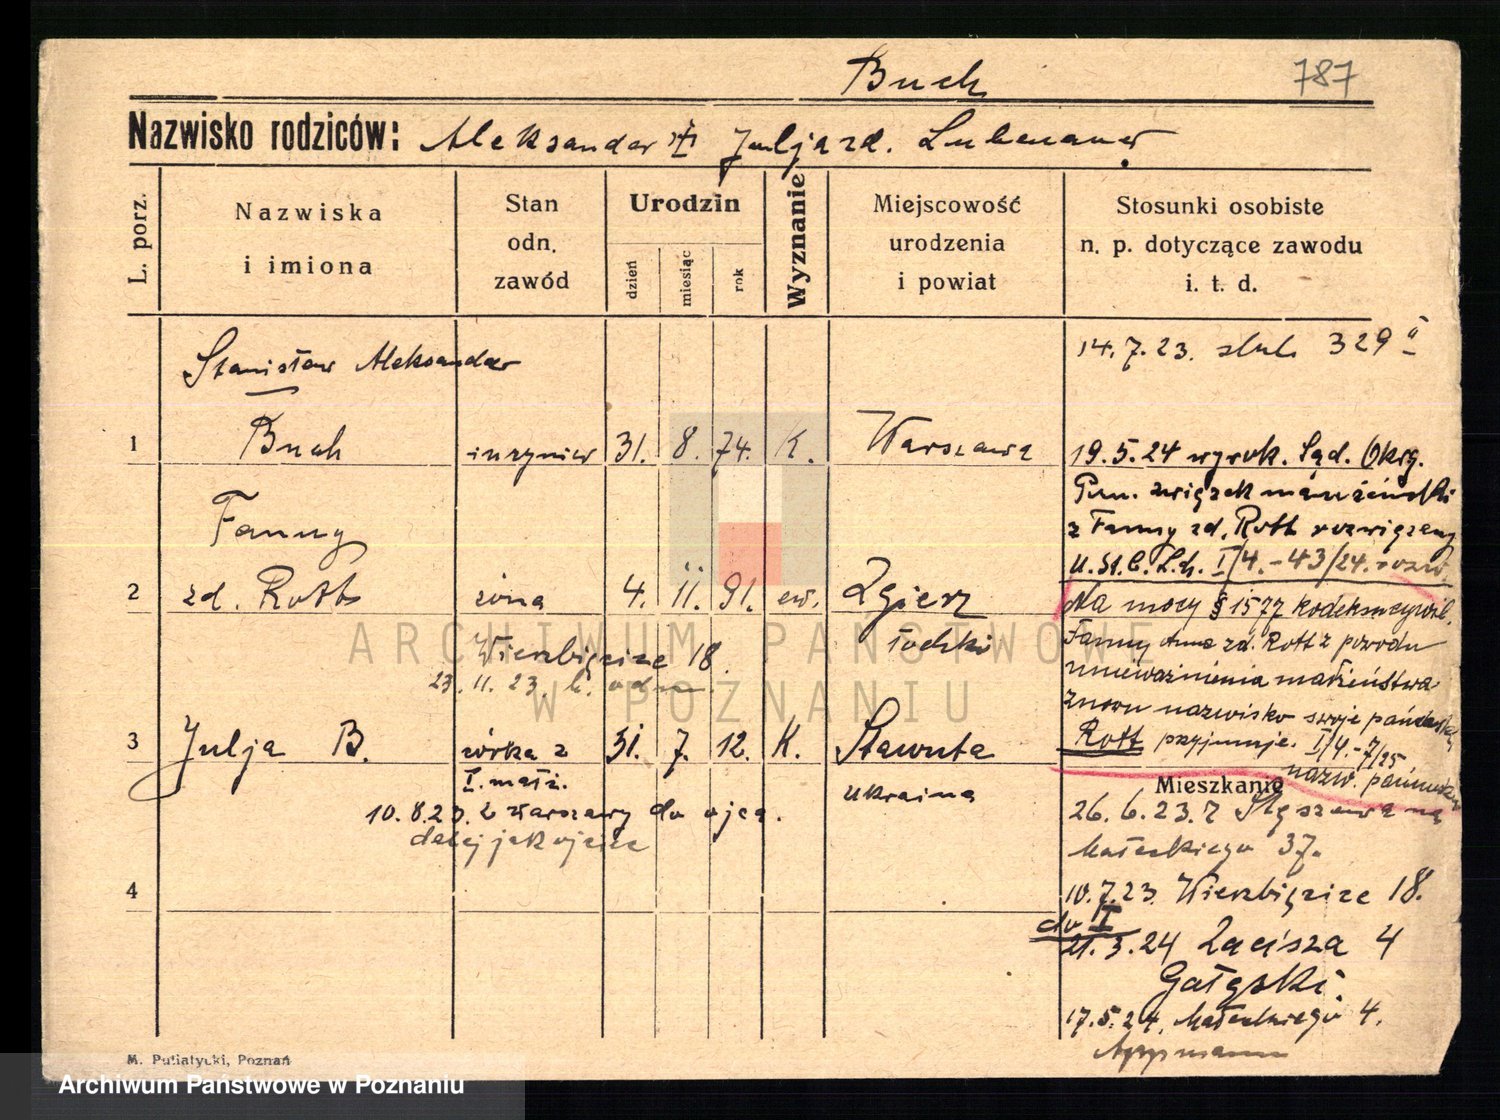 Buch
787
Nazwisko rodziców: Aleksander Julja zd.
L. porz.
Nazwiska
i imiona
Stan
odn.
zawód
Urodzin
dzień
miesiąc
rok
Wyznanie
Miejscowość
urodzenia
i powiat
Stosunki osobiste
n. p. dotyczące zawodu
i. t. d.
14. 7. 23. slub 329
Stanisław Aleksander
1 Buch inżynier 31. 8. 74. K. Warszawa
19. 5. 24 wyrok. Sąd. Okrg.
Pozn. związek małżeński
z Fanny zd. Rott rozwiązany
U. St. C. L.ch. I/4. - 43/24. rozw.
Fanny
2 zd. Rott żona 4. 11. 91. ew. Zgierz
łódzki
Wierzbięcice 18.
23. 11. 23.
Na mocy § 1577 kodeksu cywil.
Fanny Anna zd. Rott z powodu
unieważnienia małżeństwa
znowu nazwisko swoje panieńskie
Rott przyjmuje. I/4. - 7/25
nazw. panieńskie
3 Julja B. córka z 31. 7. 12. K. Sławuta
I. małż.
Ukraina
10. 8. 23. z Warszawy do ojca.
dalej jak ojciec
Mieszkanie
26. 6. 23. z Stęszewa na
Małeckiego 37.
4
10. 7. 23. Wierzbięcice 18.
do I
21. 3. 24 Zacisza 4
Gałęski.
17. 5. 24. Małeckiego 4.
Appmann
M. Putiatycki, Poznań
ARCHIWUM PAŃSTWOWE
W POZNANIU
Archiwum Państwowe w Poznaniu